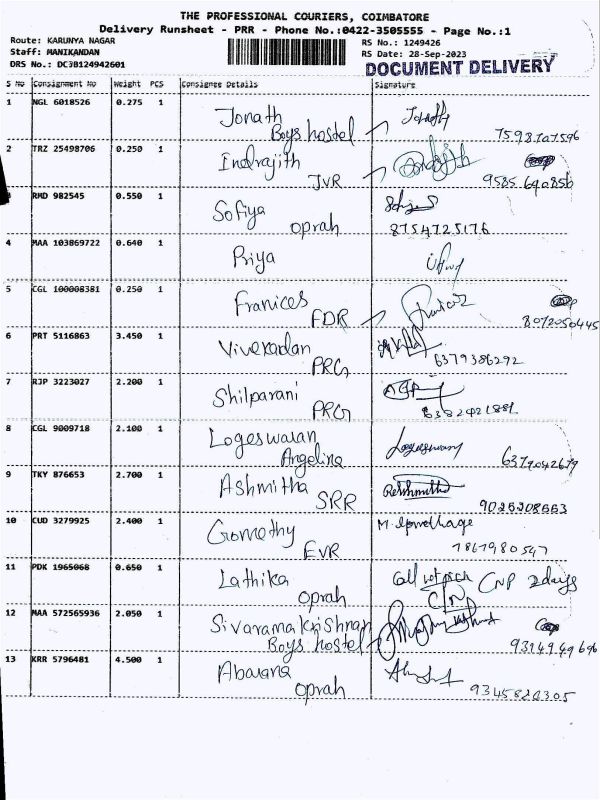 THE PROFESSIONAL COURIERS, COIMBATORE
Delivery Runsheet - PRR - Phone No.:0422-3505555 - Page No.:1
Route: KARUNYA NAGAR
RS No.: 1249426
Staff: MANIKANDAN
RS Date: 28-Sep-2023
DRS No.: DC3B124942601
DOCUMENT DELIVERY
S No Consignment No Weight PCS Consignee Details Signature
1 NGL 6018526 0.275 1 Jonath
Boys hostel
2 TRZ 25498706 0.250 1 Indrajith
JVR 9585640856
3 RMD 982545 0.550 1 Sofiya
oprah 8754725176
4 MAA 103869722 0.640 1 Priya
5 CGL 100008381 0.250 1 Franices
FDR 8072050445
6 PRT 5116863 3.450 1 Vivekadan
PRG 6379386292
7 RJP 3223027 2.200 1 Shilparani
PRG
8 CGL 9009718 2.100 1 Logeswaran
Angelina 6379042679
9 TKY 876653 2.700 1 Ashmitha
SRR
10 CUD 3279925 2.400 1 Gomethy
EVR
11 PDK 1965068 0.650 1 Lathika Call not pick CNP 2days
oprah
12 MAA 572565936 2.050 1 Sivaramakrishnan
Boys hostel
13 KRR 5796481 4.500 1 Abarana
oprah